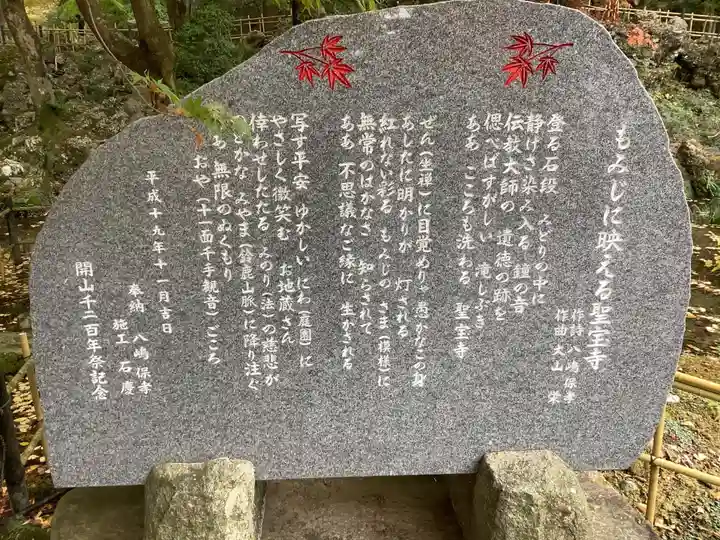 もみじに映える聖宝寺
作詩 八嶋保孝
作曲 大山 栄
登る石段 みどりの中に
静けさ染み入る 鐘の音
伝教大師の 遺徳の跡を
偲べばすがしい 滝しぶき
ああ こころも洗わる 聖宝寺
ぜん(坐禅)に目覚めりゃ 愚かなこの身
あしたに明かりが 灯される
紅れない彩る もみじの さま(模様)に
無常のはかなさ 知らされて
ああ 不思議なご縁に 生かされる
写す平安 ゆかしい にわ(庭園)に
やさしく微笑む お地蔵さん
倖わせしたたる みのり(法)の慈悲が
のどかな みやま(鈴鹿山脈)に降り注ぐ
あ 無限のぬくもり
おや(十一面千手観音)ごころ
平成十九年十一月吉日
奉納 八嶋保孝
施工 石慶
開山千二百年祭記念